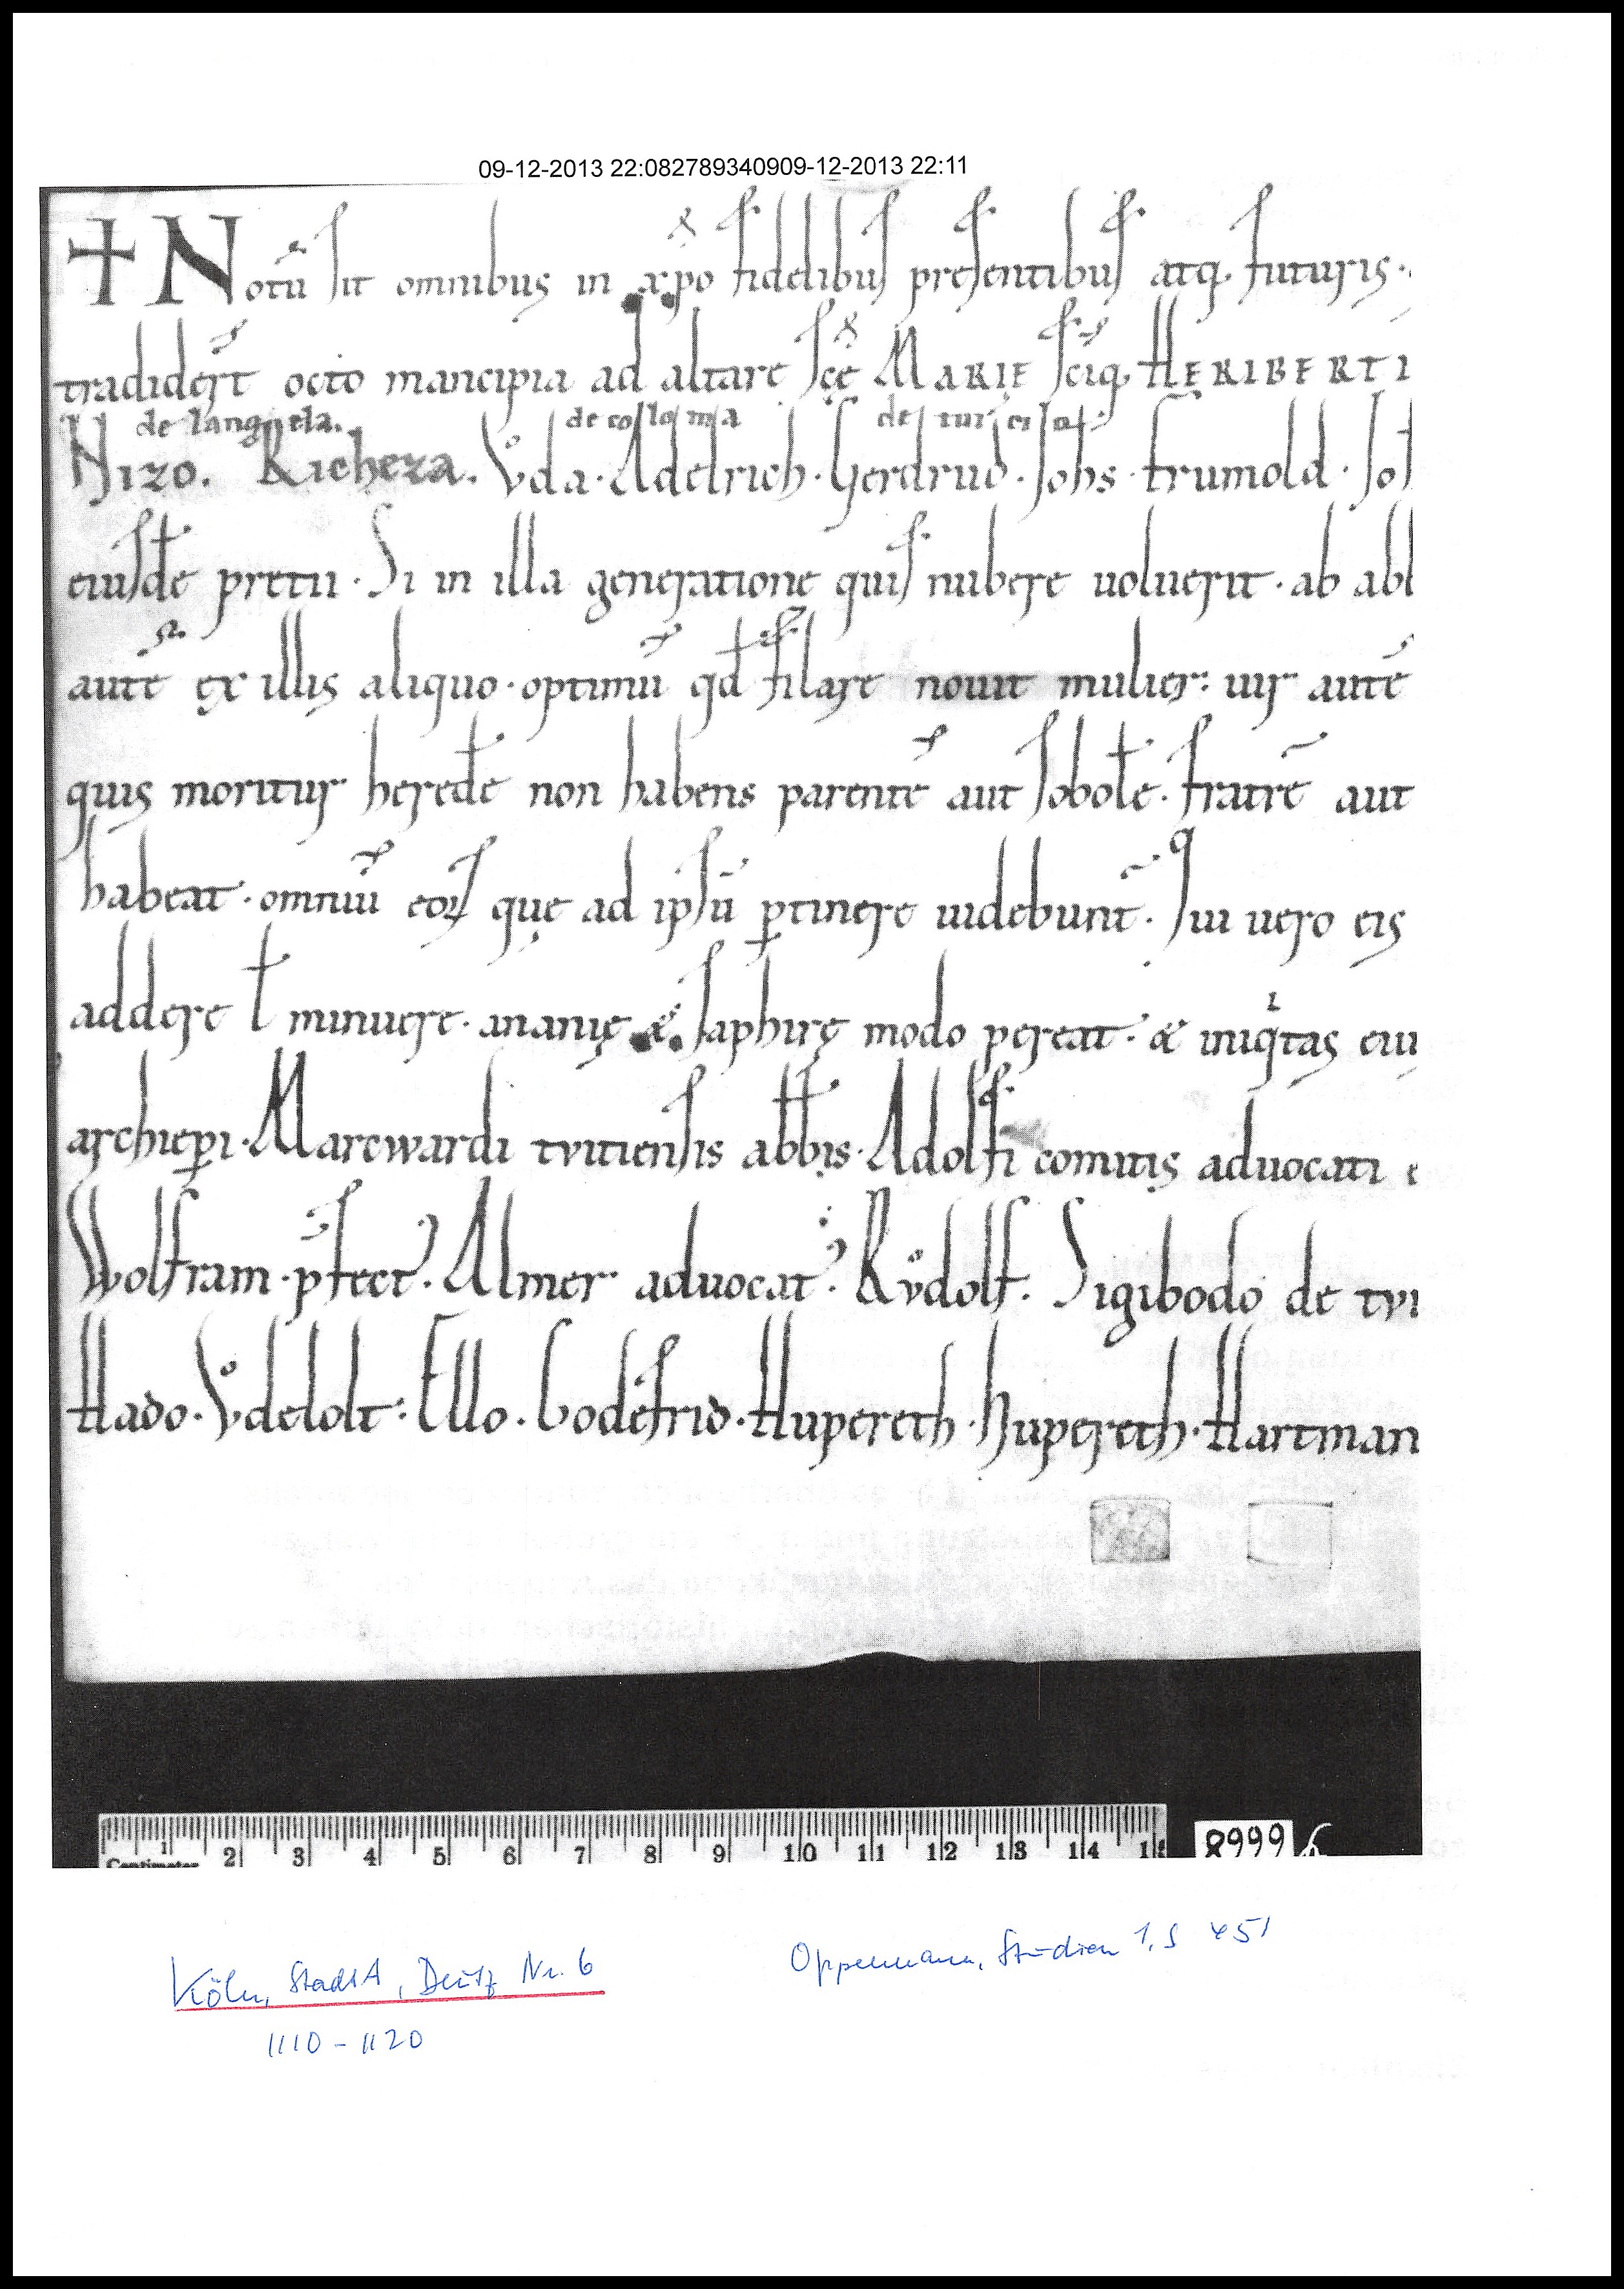 09-12-2013 22:082789340909-12-2013 22:11
✝ Notū sit omnibus in xpo fidelibus presentibus atq. futuris.
tradiderт̄ octo mancipia ad altare scē MARIE sciq. HERIBERTI
de langela. de colonia de
Nizo. Richeza. Vͦda. Adelrich. Gerdrud. Johs. frumold.
eiusdē pretii. Si in illa generatione quis nubere uoluerit. ab abb
autē ex illis aliquo. optimū qd filare nouit mulier: uir autē
quis moritur heredē non habens parentē aut sobolē. fratrē aut
habeat. omniū eoꝝ quę ad ipsū ꝑtinere uidebunt̄. Siqͥ uero eis
addere ł minuere. ananię & saphirę modo pereat. & iniqͥtas eiu
archiepi. Marcwardi tvitiensis abbis. Adolfi comitis aduocati
Wolfram. p̄fect᾽. Almer aduocat᾽. Rvͦdolf. Sigibodo de tvi
Hado. Vͦdelolt. Ello. Godefrid. Hupereth. Hupereth. Hartman
Centimeter 1 2 3 4 5 6 7 8 9 10 11 12 13 14 15
8999
Köln, StadtA, Deutz Nr. 6
Oppermann, Studien 1, S 451
1110 - 1120